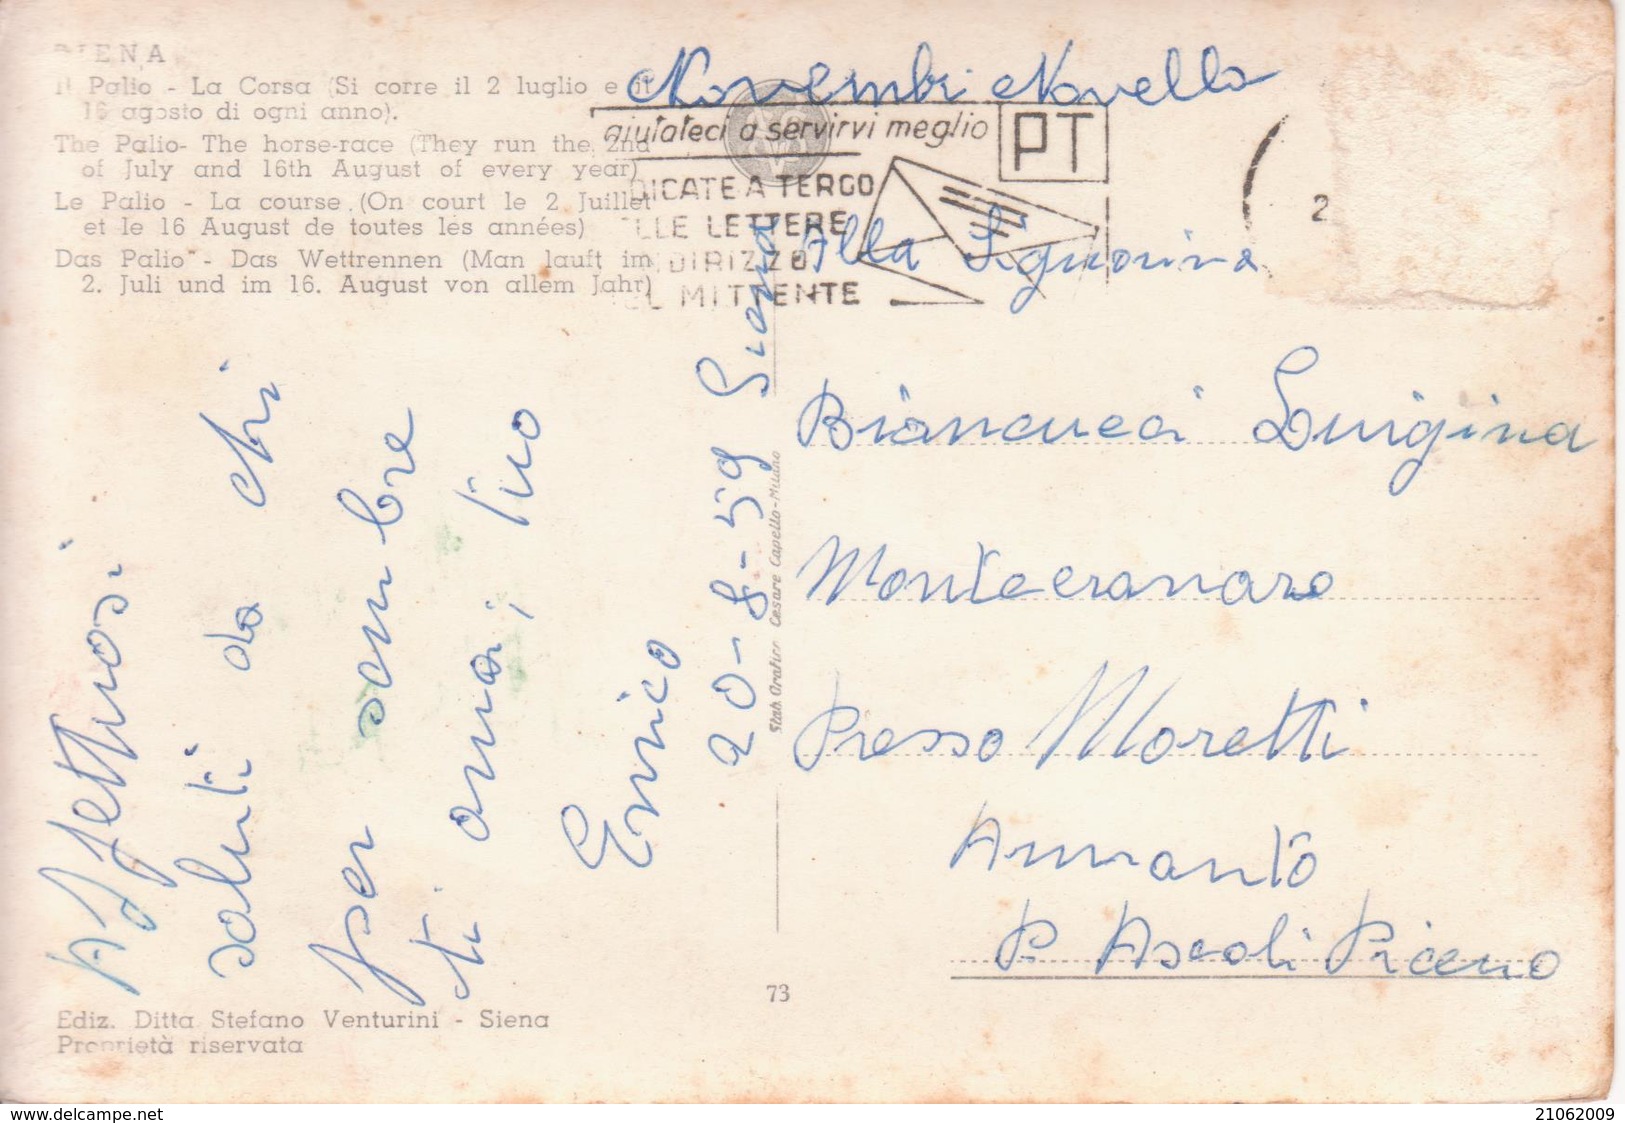 SIENA
Il Palio - La Corsa (Si corre il 2 luglio e il
16 agosto di ogni anno).
The Palio- The horse-race (They run the 2nd
of July and 16th August of every year)
Le Palio - La course (On court le 2 Juillet
et le 16 August de toutes les années)
Das Palio - Das Wettrennen (Man lauft im
2. Juli und im 16. August von allem Jahr)
Novembri Novella
aiutateci a servirvi meglio
PT
DICATE A TERGO
LLE LETTERE
NDIRIZZO
EL MITTENTE
2
Alla Signorina
Biancucci Luigina
Montecranaro
Presso Moretti
Ammantò
P. Ascoli Piceno
Affettuosi
saluti da chi
per sembre
ti amai, tuo
Enrico
20-8-59 Siena
Stab. Grafico Cesare Capello-Milano
73
Ediz. Ditta Stefano Venturini - Siena
Proprietà riservata
www.delcampe.net
21062009